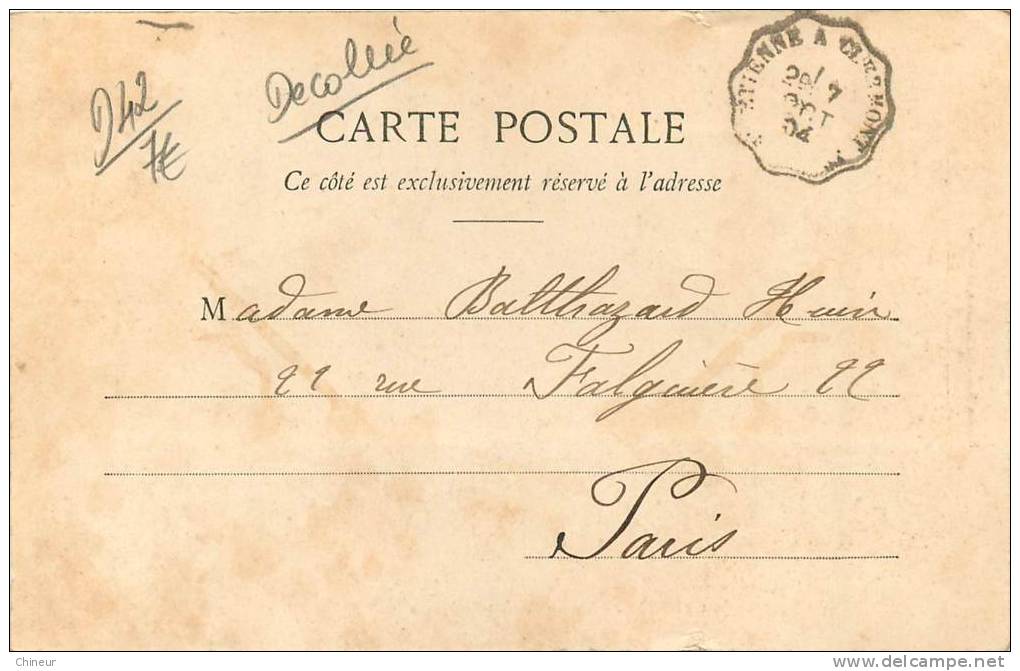 D42
7€
Decollée
ETIENNE A CLERMONT
7
OCT
04
CARTE POSTALE
Ce côté est exclusivement réservé à l'adresse
Madame Balthazard Huin
22 rue Falguière 22
Paris
Chineur
delcampe.net